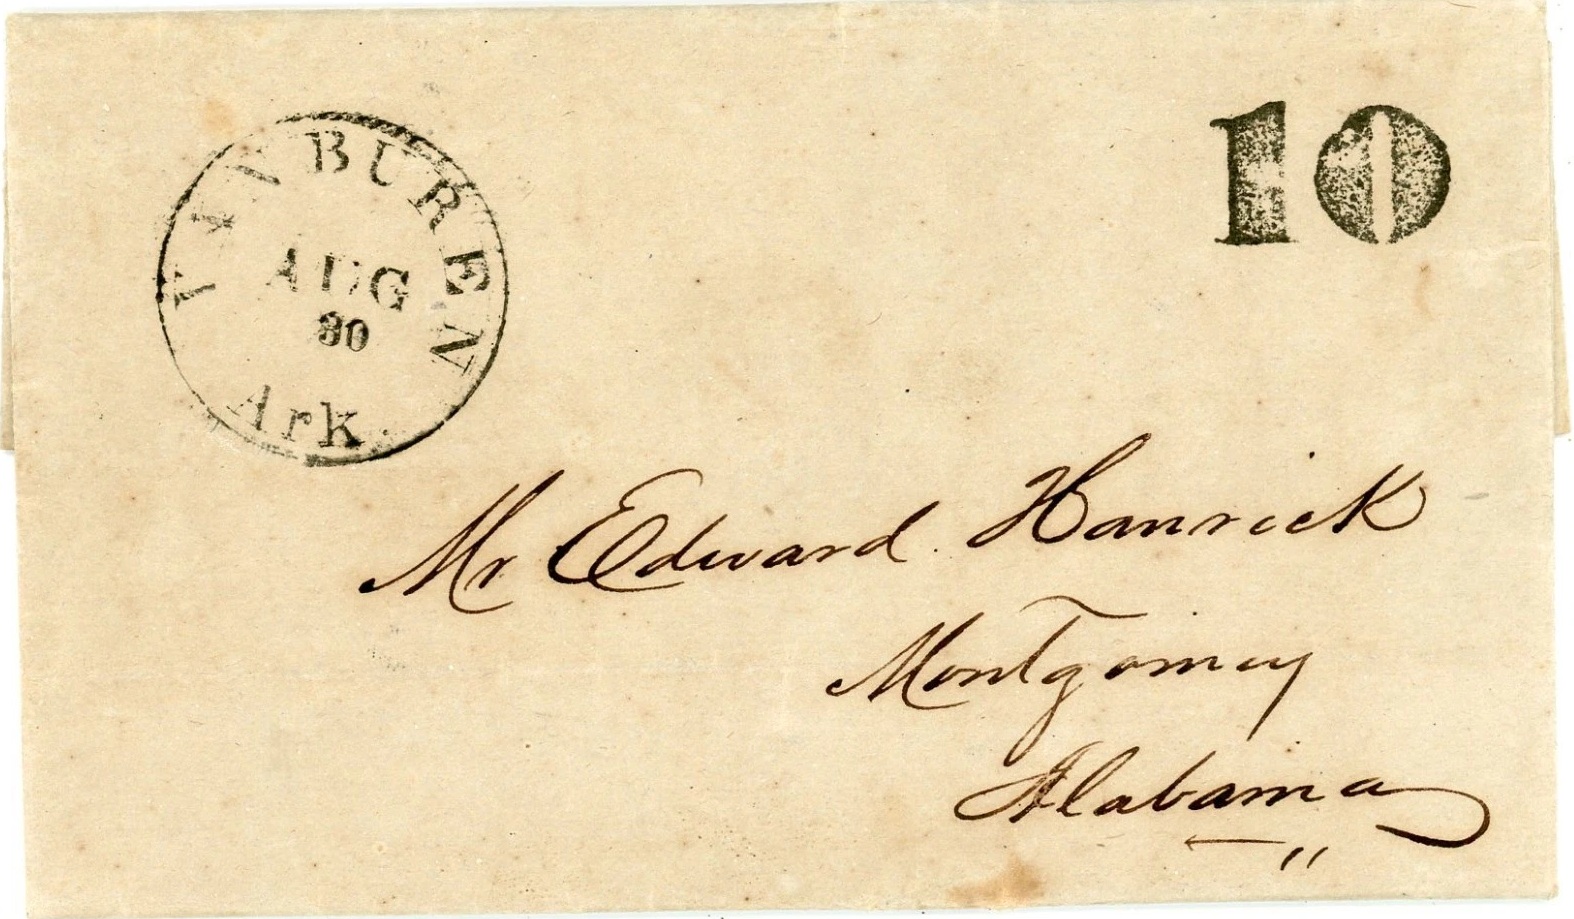 VAN BUREN
AUG
30
Ark.
10
Mr Edward Hanrick
Montgomery
Alabama